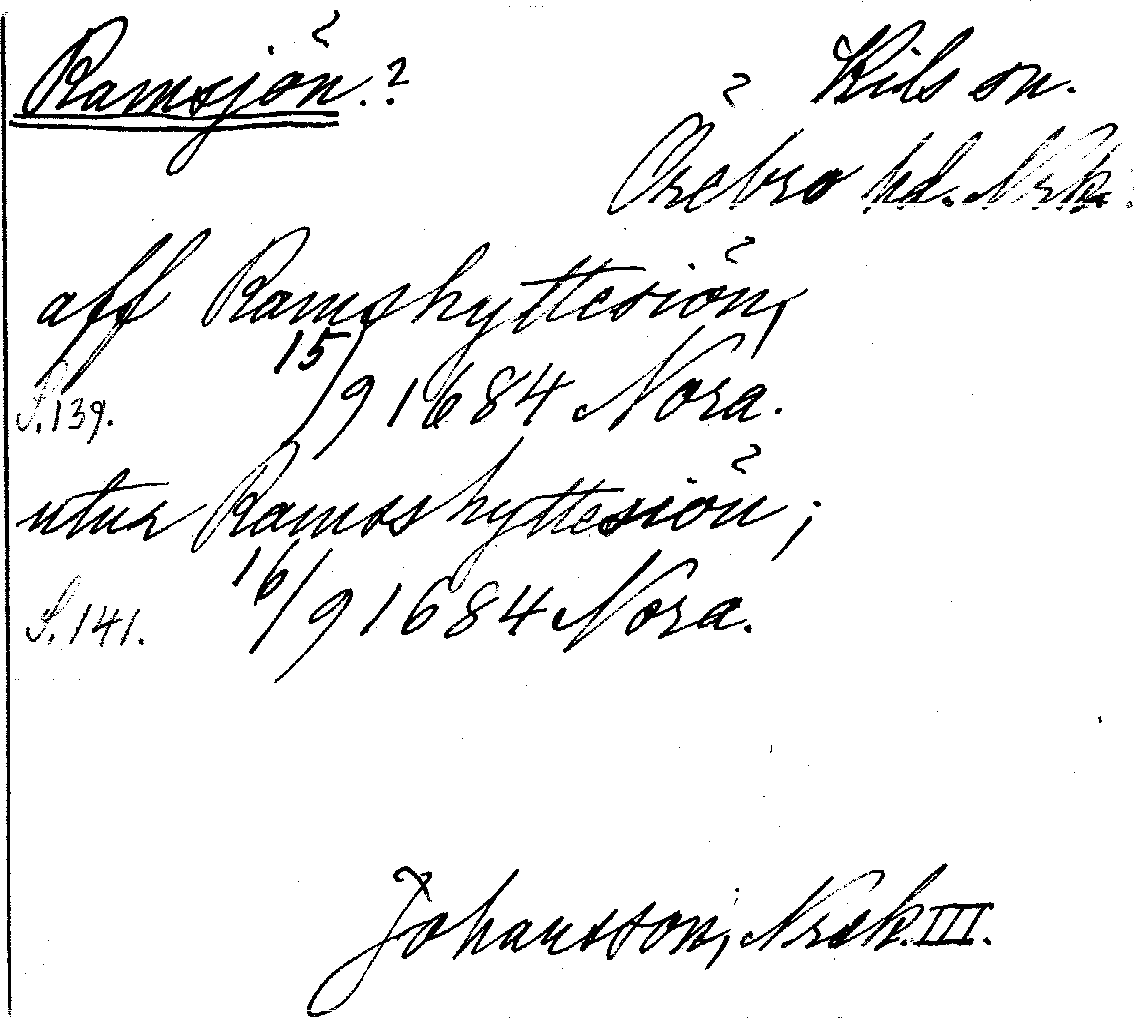 Ramsjön.? Kils sn.
Örebro hd. Nrk.
aff Ramshyttesiön,
S.139. 15/9 1684 Nora.
utur Ramsshyttesiön;
S.141. 16/9 1684 Nora.
Johansson, Nrek. III.